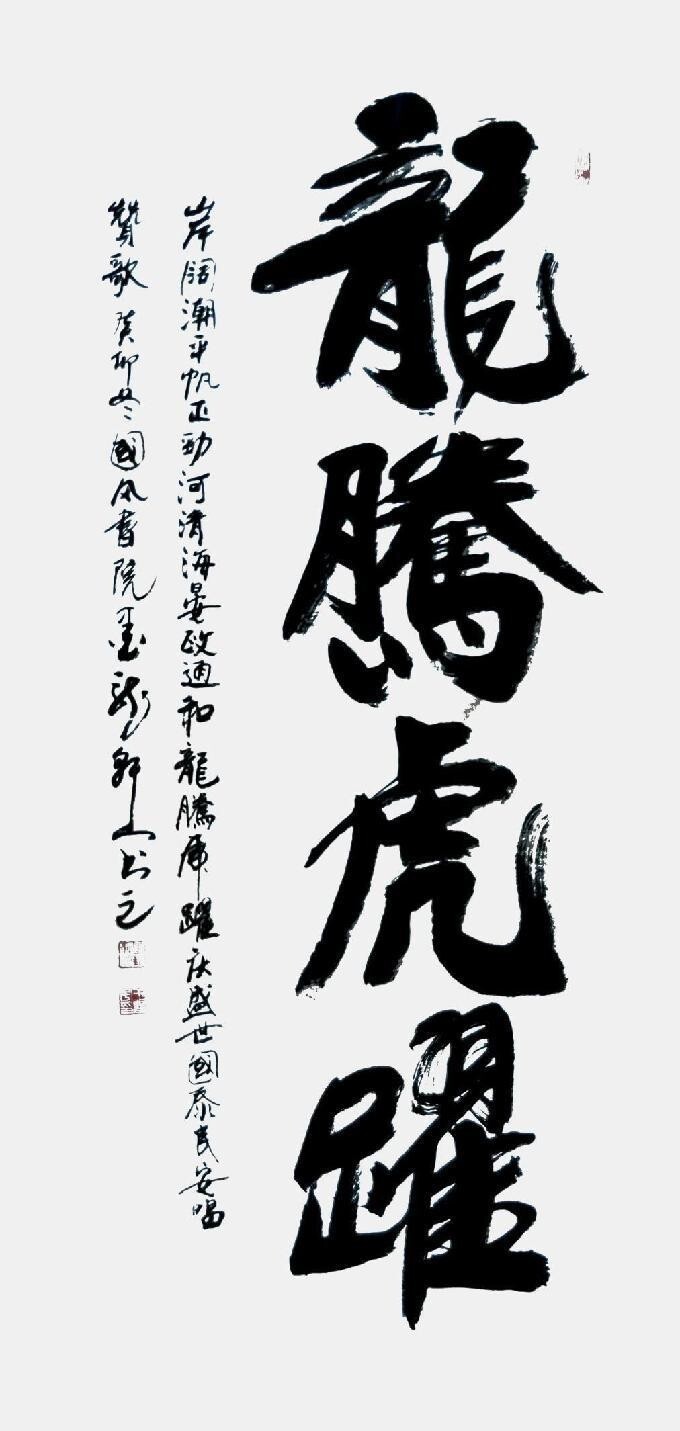 龍騰虎躍
岸阔潮平帆正勁河清海晏政通和龍騰虎躍庆盛世國泰民安唱
贊歌癸卯冬國风書院墨龍軒人书之